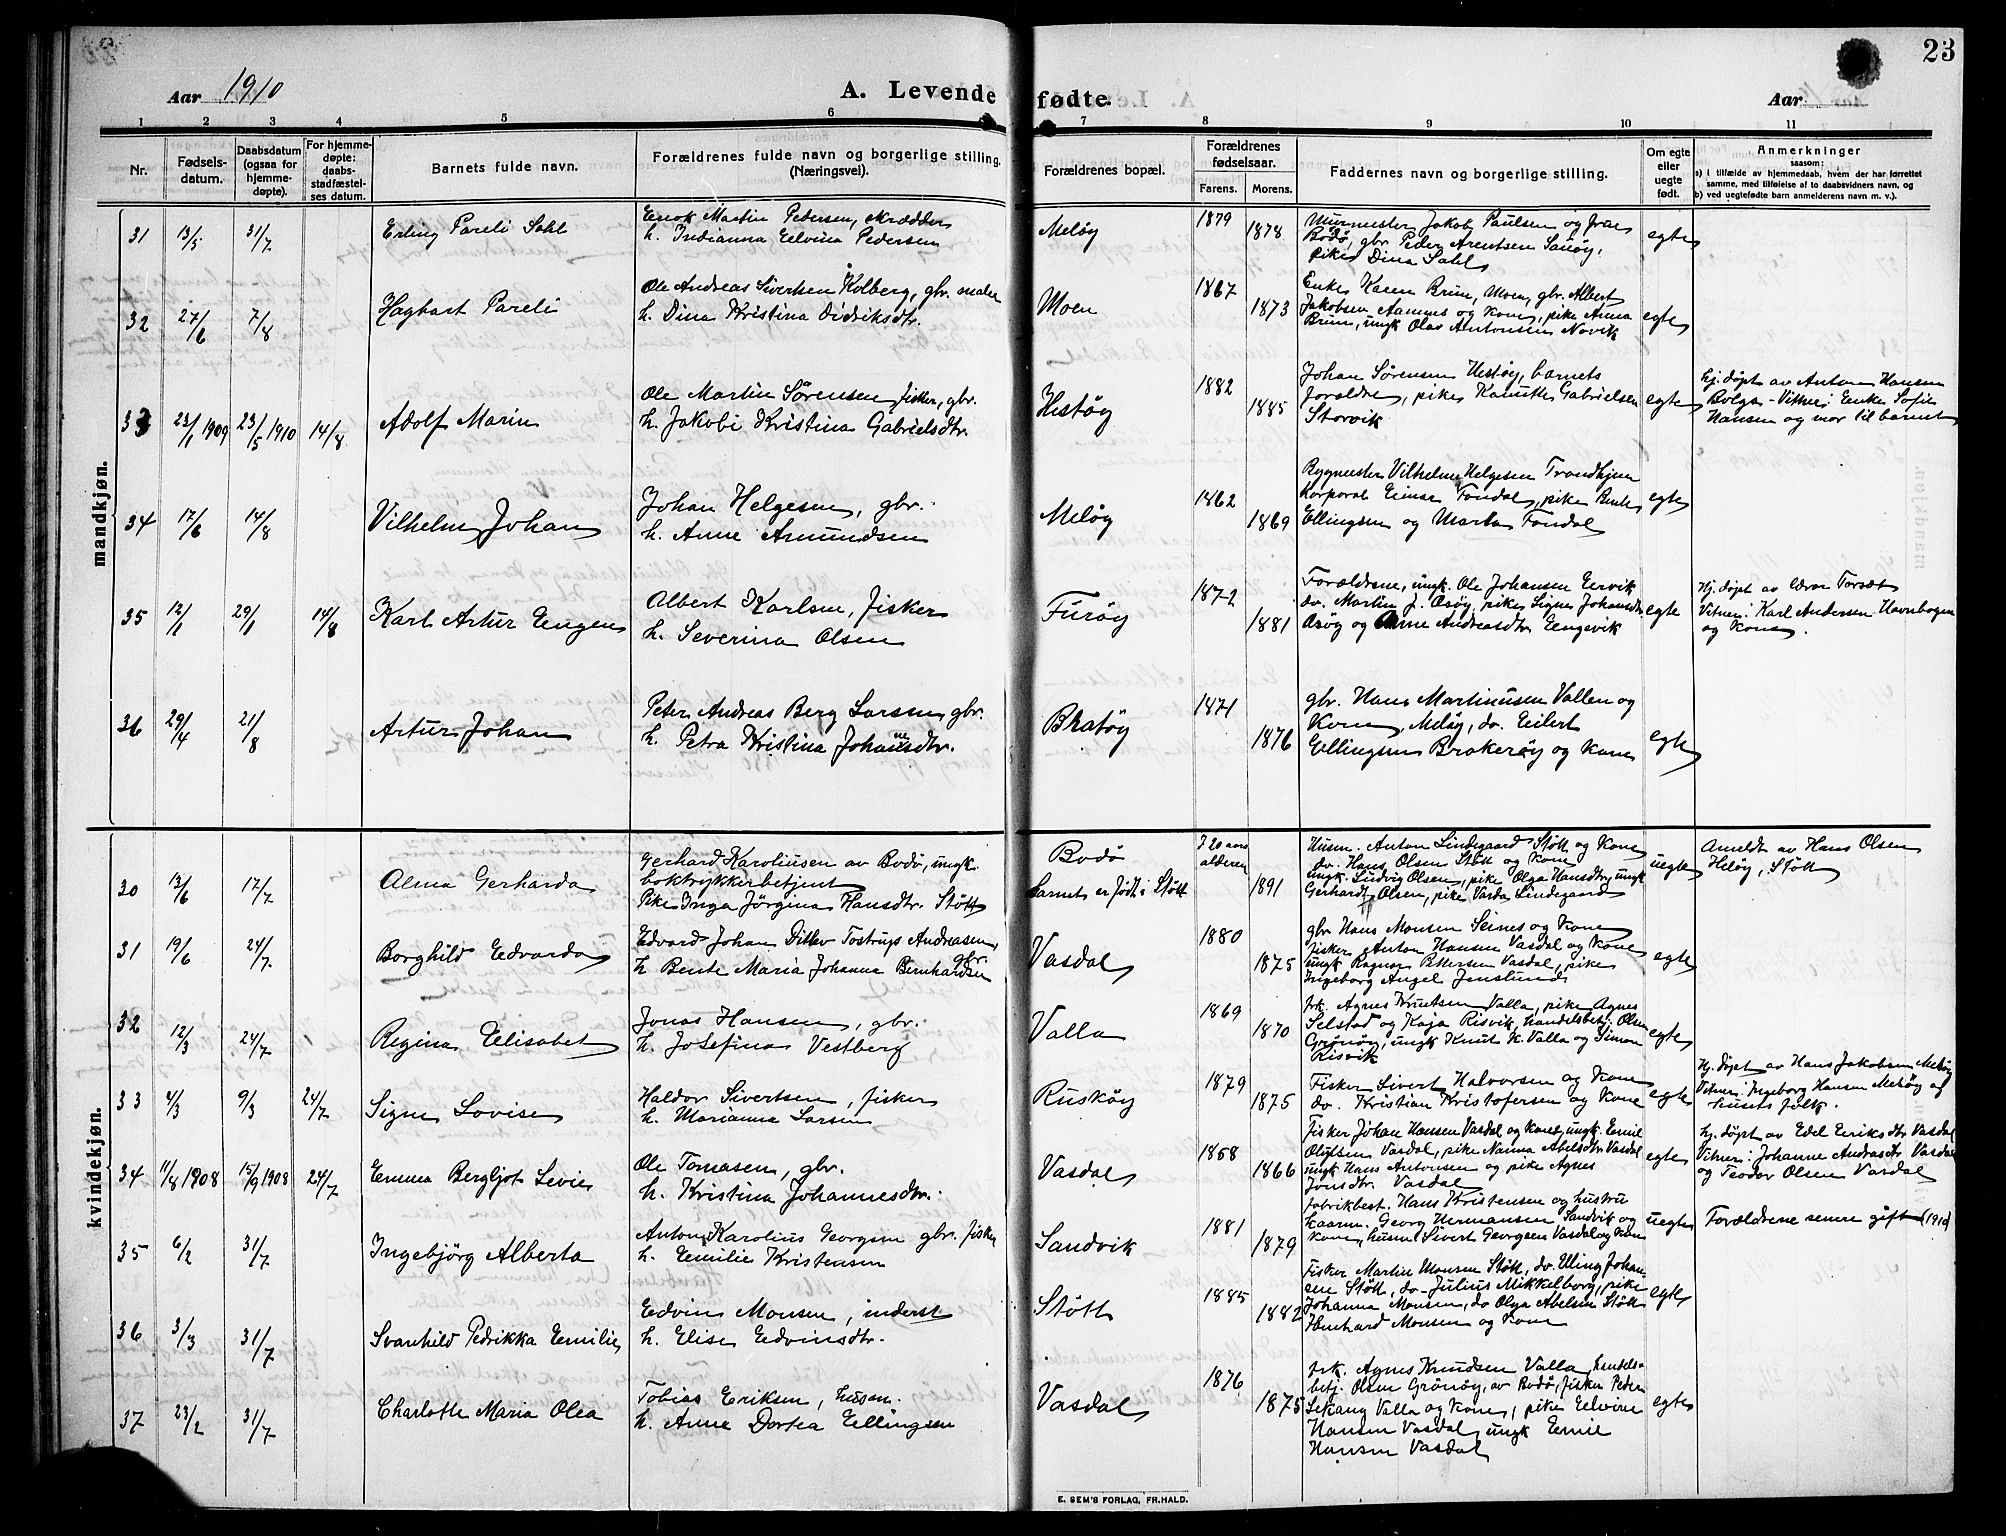 23
Aar 1910
A. Levende fødte.
Aar
1 2 3 4 5 6 7 8 9 10 11
Nr.
Fødsels-
datum.
Daabsdatum
(ogsaa for
hjemme-
døpte).
For hjemme-
døpte:
daabs-
stadfæstel-
ses datum.
Barnets fulde navn.
Forældrenes fulde navn og borgerlige stilling.
(Næringsvei).
Forældrenes bopæl.
Forældrenes
fødselsaar.
Farens. Morens.
Faddernes navn og borgerlige stilling.
Om egte
eller
uegte
født.
Anmerkninger
saasom:
a) i tilfælde av hjemmedaab, hvem der har forrettet
samme, med tilføielse af to daabsvidners navn, og
b) ved uegtefødte barn anmelderens navn m. v.).
mandkjøn.
31 13/5 31/7 Erling Pareli Dahl
Enok Martin Pedersen, skrædder
h. Indianna Elvina Pedersen
Meløy 1879 1878
Murmester Jakob Paulsen og frue
Bodø, gbr. Peder Arentsen Sauøy,
pike Dina Dahl
egte
32 27/6 7/8 Hagbart Pareli
Ole Andreas Sivertsen Kolberg, gbr. maler
h. Dina Kristina Didriksdtr.
Moen 1867 1873
Enke Karen Brun, Moen, gbr. Albert
Jakobsen Aamnes og kone, pike Anna
Brun, ungk Olav Antonsen Novik
egte
33 23/1 1909 23/5 1910 14/8 Adolf Marin
Ole Martin Sørensen fisker, gbr.
h. Jakobi Kristina Gabrielsdtr.
Hestøy 1882 1885
Johan Sørensen Hestøy, barnets
foraldre, pike Gabrielsen
Storvik
egte
hj. døpt av Anton Hansen
Bolga - Vitner: Enke Sofie
Hansen og mor til barnet
34 17/6 14/8 Vilhelm Johan
Johan Helgesen, gbr.
h. Anne Amundsen
Meløy 1862 1869
Bygmester Vilhelm Helgesen Trondhjem
Korporal Einar Fondal, pike Bente
Ellingsen og Marta Fondal
egte
35 12/1 29/1 14/8 Karl Artur Engen
Albert Karlsen, fisker
h. Severina Olsen
Furøy 1872 1881
Forældrene, ungk. Ole Johansen Ervik
do. Martin J. Osøy, pike Signe Johansdtr.
Osøy og Anne Andreasdtr Engevik
egte
Hj. døpt av lærer Torsæt
Vitner: Karl Andersen Havnbogen
og Kone.
36 29/4 21/8 Artur Johan
Peter Andreas Berg Larsen gbr.
h. Petra Kristina Johannesdtr.
Bratøy 1871 1876
gbr. Hans Martinusen Vallen og
Kone, Meløy, do. Eilert
Ellingsen Brakerøy og kone
egte
kvindekjøn.
30 13/6 17/7 Alma Gerharda
Gerhard Karoliusen av Bodø, ungk.
boktrykkerbetjent
Pike Inga Jørgina Hansdtr. Støtt
Bodø
barnet er født i Støtt
I 20 aars
alderen 1891
Husm. Anton Lindegaard Støtt og Kone
do. Hans Olsen Støtt og Kone
ungk. Ludvig Olsen, pike Olga Hansdtr, ungk
Gerhardt Olsen, pike Varda Lindegaard
uegte
Anmeldt av Hans Olsen
Heløy, Støtt
31 19/6 24/7 Borghild Edvarda
Edvard Johan Ditlev Tostrup Andreasen,
gbr.
h. Bente Maria Johanna Bernhardsen
Vasdal 1880 1875
gbr. Hans Monsen Seines og Kone
fisker Anton Hansen Vasdal og Kone
ungk Ragnar Pettersen Vasdal, pike
Ingeborg Angel Jenslund
egte
32 12/3 24/7 Regina Elisabet
Jonas Hansen, gbr.
h. Josefina Vestberg
Valla 1869 1870
frk. Agnes Knutsen Valla, pike Agnes
Selstad og Kaja Risvik, handelsbetj. Olsen
Grønøy, ungk Knut K. Valla og Simon
Risvik
egte
33 4/3 9/3 24/7 Signe Lovise
Haldor Sivertsen, fisker
h. Marianna Larsen
Ruskøy 1879 1875
Fisker Sivert Halvorsen og Kone
do. Kristian Kristofersen og Kone
egte
Hj. døpt av Hans Jakobsen Meløy
Vitner: Ingeborg Hansen Meløy af
husets folk.
34 11/8 1908 15/9 1908 24/7 Emma Bergljot Sevie
Ole Tomasen, gbr.
h. Kristina Johannesdtr.
Vasdal 1858 1866
fisker Johan Hansen Vasdal og Kone, ungk. Emil
Olufsen Vasdal, pike Nanna Abelsdtr Vasdal
ungk Hans Antonsen og pike Agnes
Jonsdtr. Vasdal
egte
hj. døpt av Edel Eriksdtr Vasdal
Vitner: Johanne Andreasdtr Vasdal
og Teodor Olsen Vasdal
35 6/2 31/7 Ingebjørg Alberta
Anton Karolius Georgsen gbr. fisker
h. Emilie Kristensen
Sandvik 1881 1879
fabrikbest. Hans Kristensen og hustru
kaarm. Georg Hermansen Sandvik og
kone, husm. Sivert Georgsen Vasdal og kone
uegte
Forældrene senere gift (1910)
36 3/3 31/7 Svanhild Pedrikka Emilie
Edvin Monsen, inderst
h. Elise Edvinsdtr.
Støtt 1885 1882
Fisker Martin Monsen Støtt, do. Elling Johan-
sen Støtt, do. Julius Mikkelborg, pike
Johanna Monsen, do Olga Abelsen Støtt
Bernhard Monsen og Kone
egte
37 23/2 31/7 Charlotte Maria Olea
Tobias Eriksen, husm.
h. Anne Dortea Ellingsen
Vasdal 1876 1875
frk. Agnes Knudsen Valla, handels-
betj. Olsen Grønøy, av Bodø, fisker Peder
Lekang Valla og Kone, pike Elvine
Hansen Vasdal, ungk Emil
Hansen Vasdal
egte
E. SEM'S FORLAG, FR.HALD.